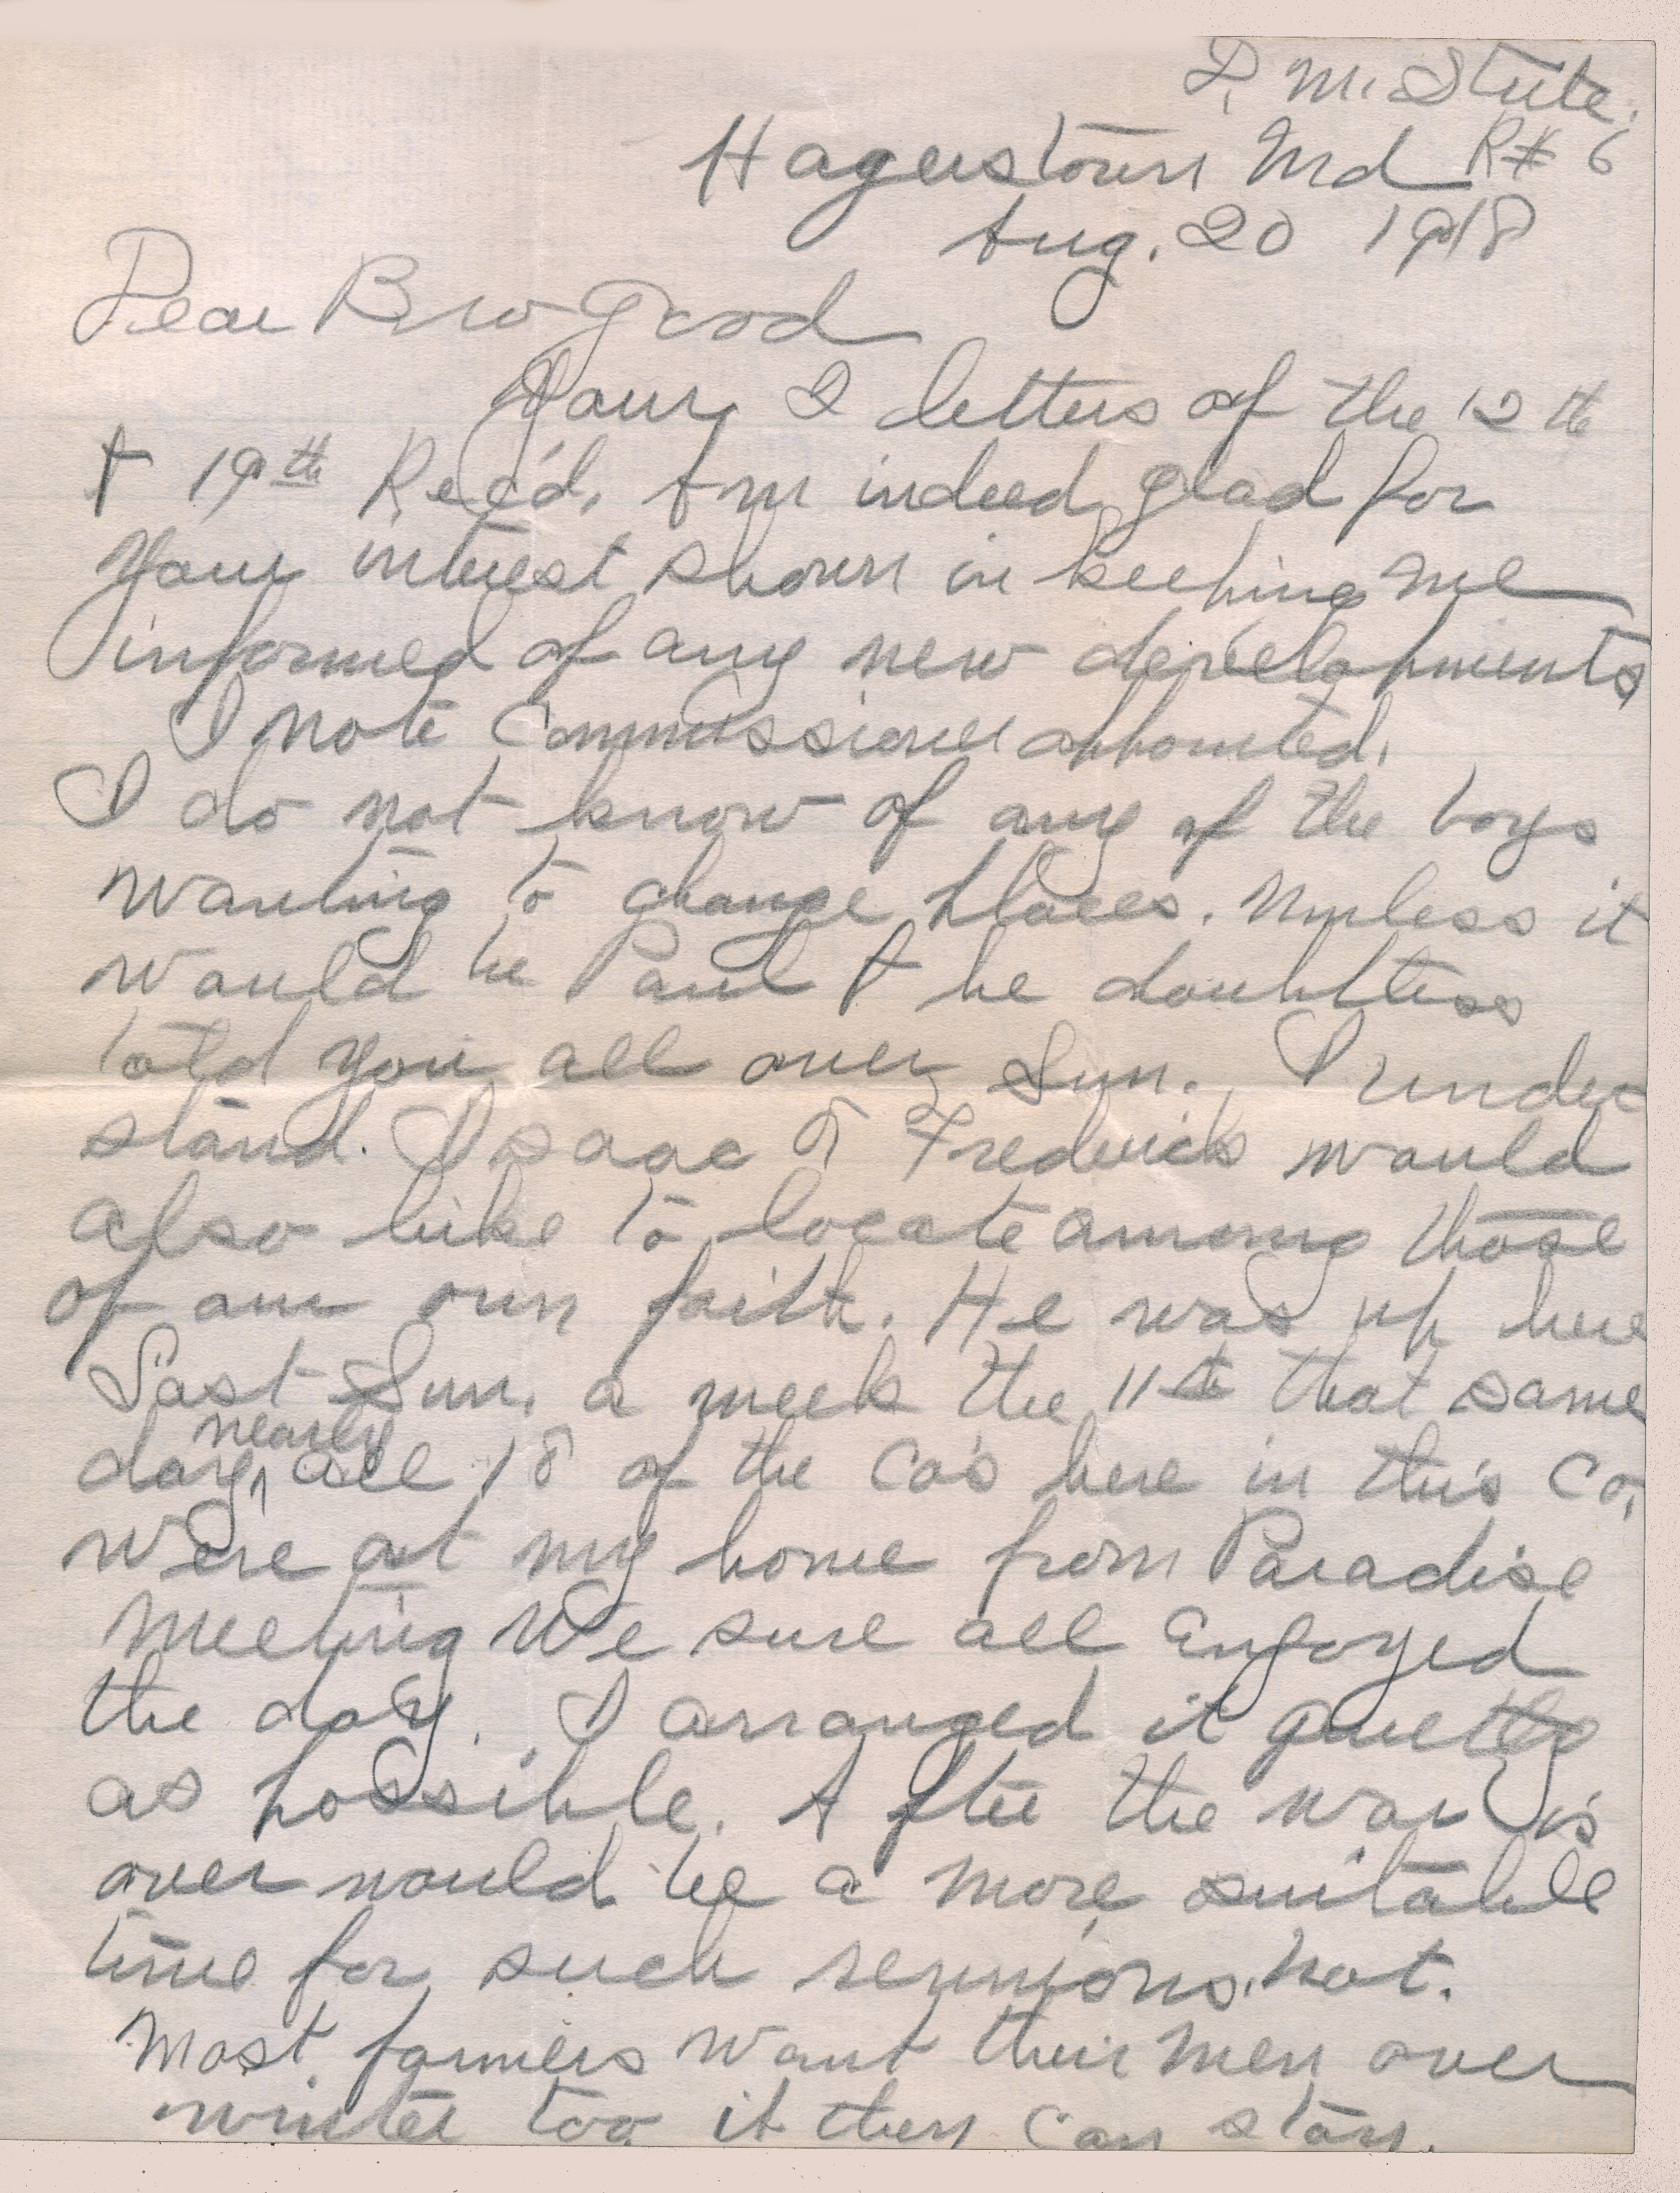 D. M. Stute.
Hagerstown Md R# 6
Aug. 20 1918
Dear Bro Good
Your 2 letters of the 12 th
+ 19th Rec'd. Am indeed glad for
Your interest shown in keeping me
informed of any new developments
I note Commissioner appointed.
I do not know of any of the boys
wanting to change places. Unless it
would be Paul + he doubtless
told you all over Sun. I under
stand. Isaac at Frederick would
also like to locate among those
of our own faith. He was up here
Last Sun. a week the 11th that same
nearly
day, all 18 of the Co's here in this Co.
were at my home from Paradise
Meeting We sure all Enjoyed
the day. I arranged it quietly
as possible. After the war is
over would be a more suitable
time for such reunions. Not.
Most farmers want their men over
winter too if they can stay.